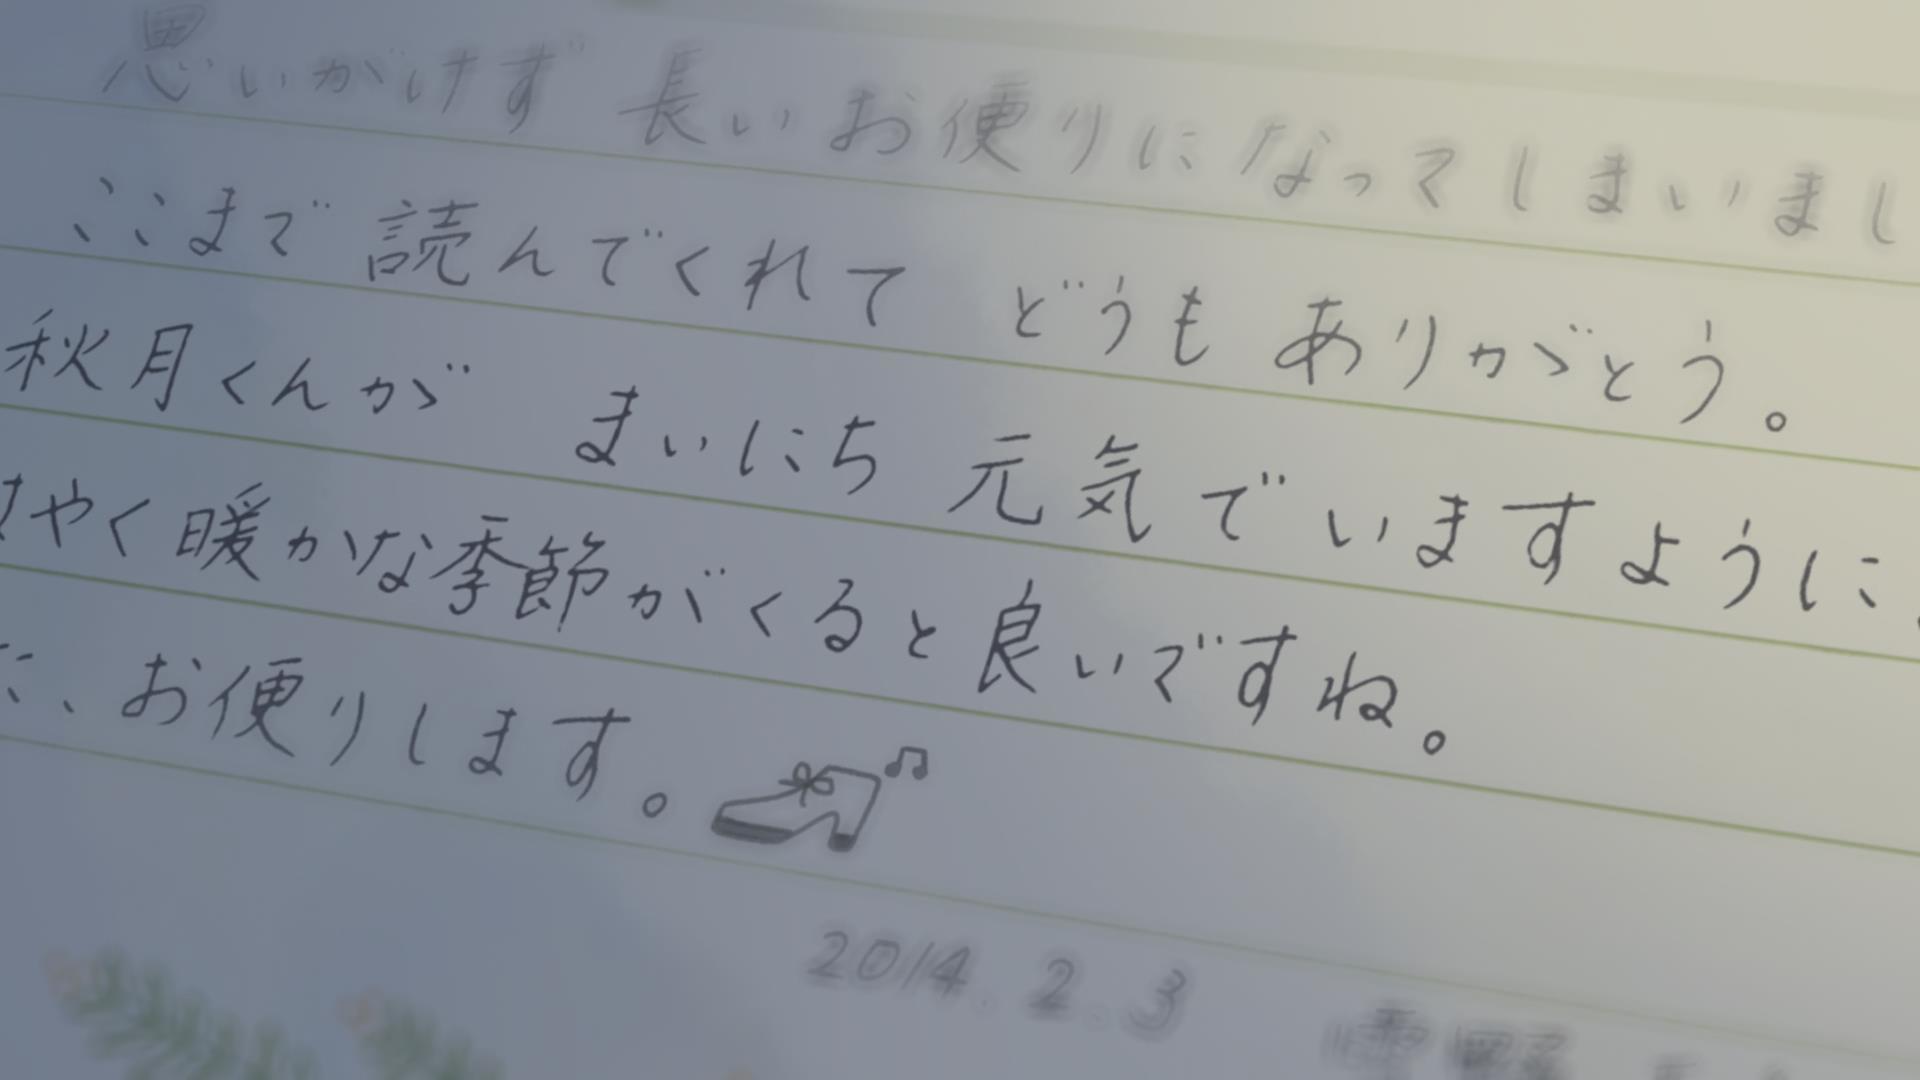 思いがけず 長いお便りになってしまいまし
ここまで 読んでくれて どうも ありがとう。
秋月くんが まいにち 元気でいますように。
はやく暖かな季節がくると良いですね。
お便りします。
2014.2.3